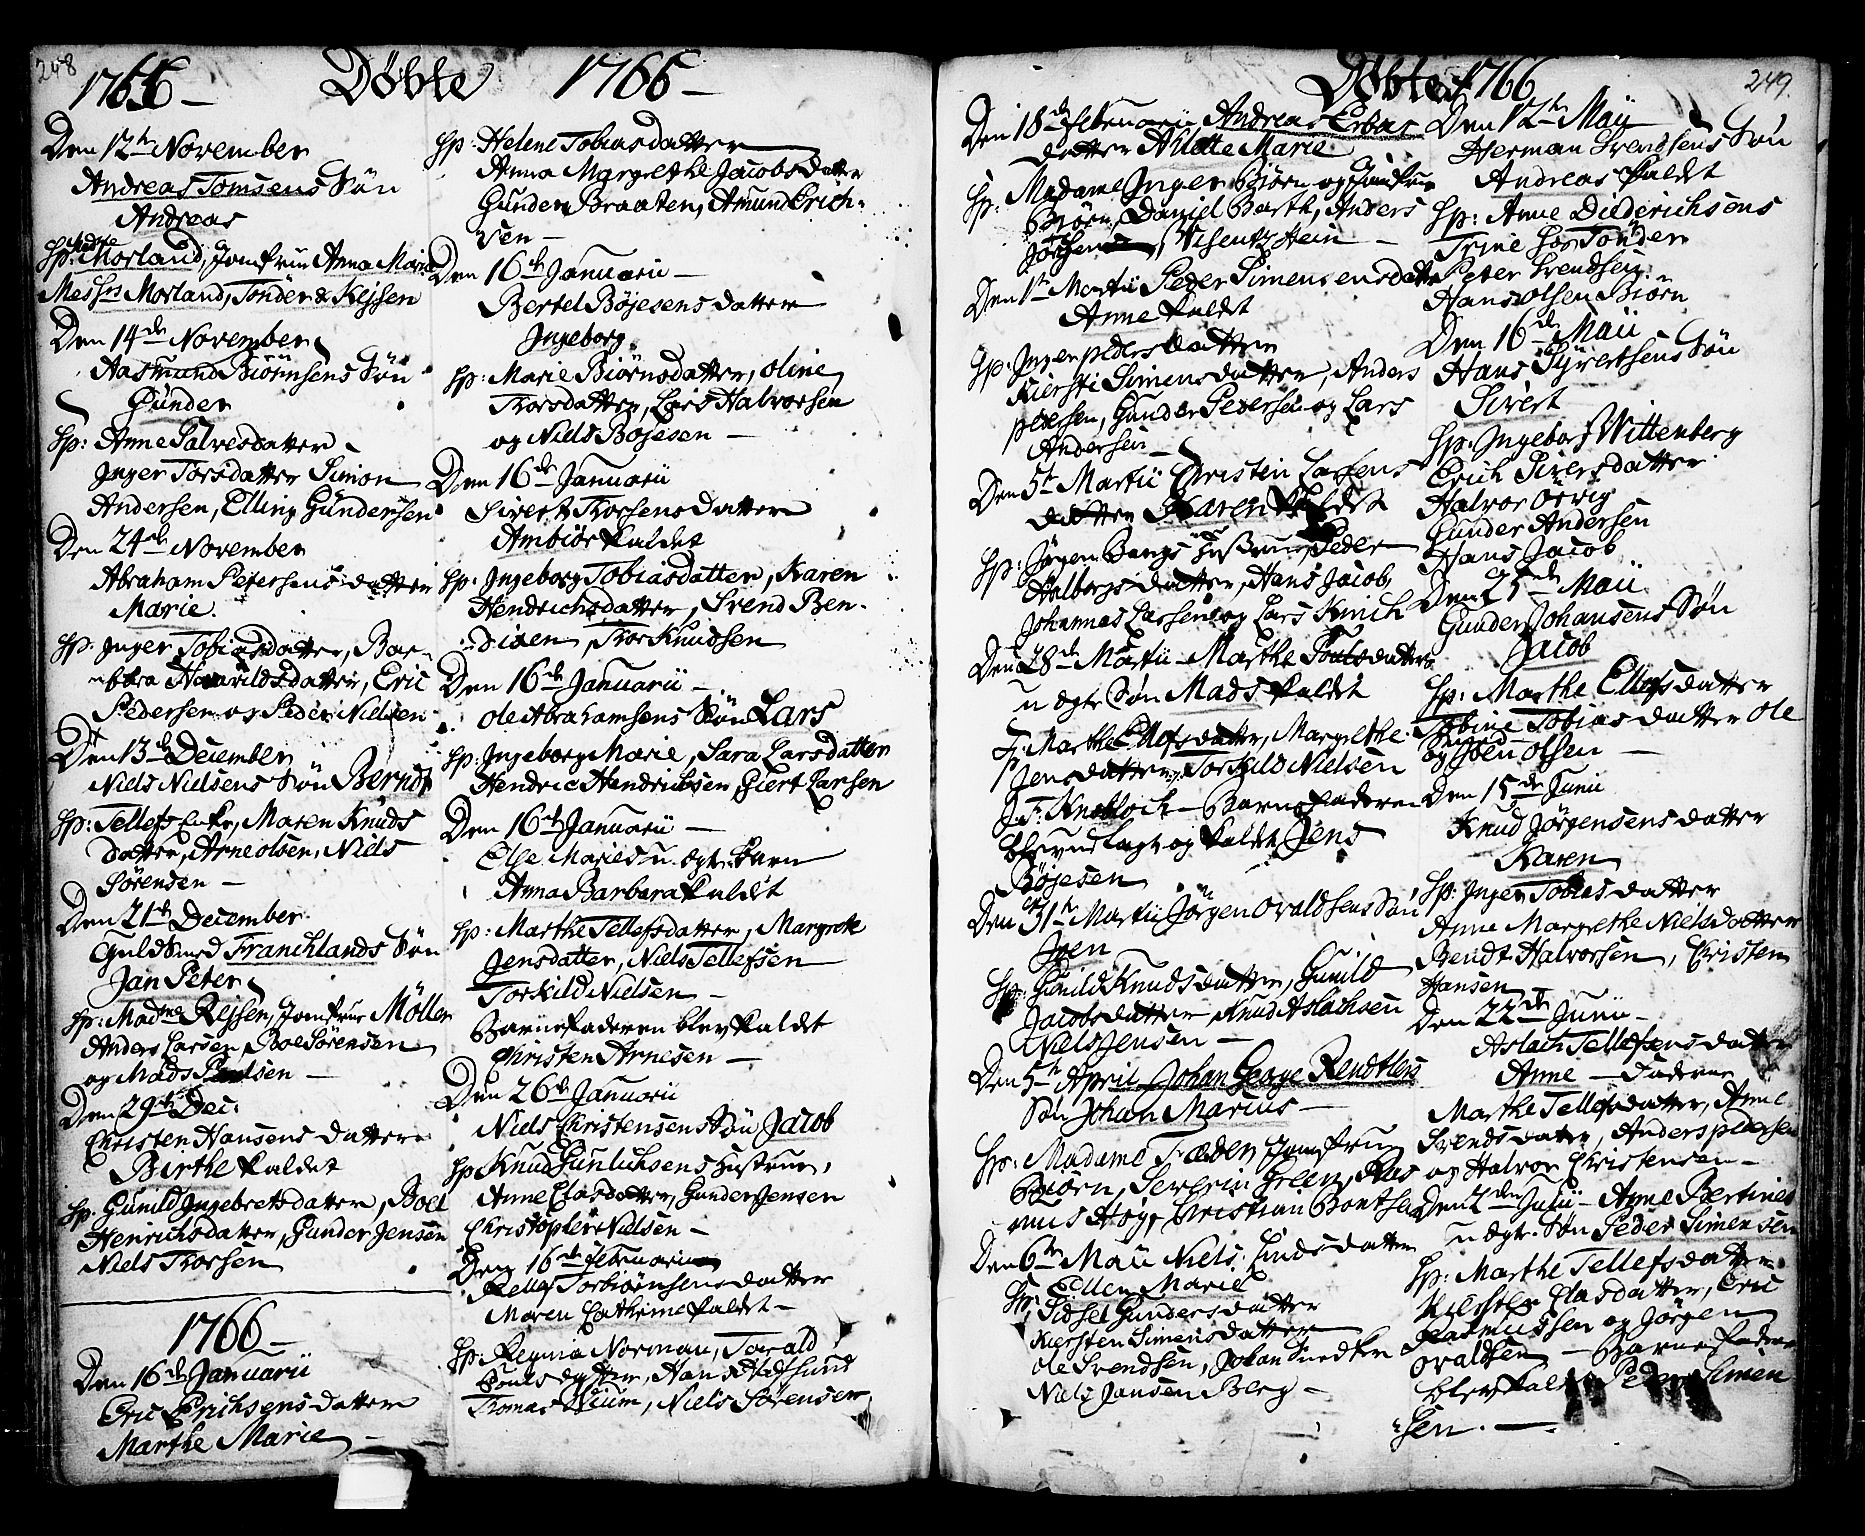 248
1765 –
Døbte 1766 –
Den 12te November
Andreas Tomsens Søn
Andreas
Sp: Morland, Jomfrue Anna Maria
Messrs Morland, Tonder & Kejsen
Den 14de November
Aasmund Biörnsens Søn
Gunder
Sp: Anne Salvesdatter
Inger Torsdatter Simon
Andersen, Elling Gundersen
Den 24de November
Abraham Petersens datter
Marie
Sp. Inger Tobiasdatter, Bar-
bara Haavildsdatter, Eric
Pedersen og Peder Nielsen
Den 13de December
Niels Nielsens Søn Berndt
Sp: Tellefs Enke, Maren Knuds
datter, Arne olsen, Niels
Sörensen –
Den 21de December
Guldsmed Franchlands Søn
Jan Peter
Sp: Madme Rejsen, Jomfrue Möller
Anders Larsen, Boe Sörensen
og Mads Poulsen –
Den 29de Dec:
Christen Hansens datter
Birthe kaldet
Sp. Gunild Ingebretsdatter, Boel
Henrichsdatter, Gunder Jensen
Niels Thorsen
1766 –
Den 16de Januarii
Eric Erichsens datter
Marthe Marie
Sp: Helene Tobiasdatter
Anna Margrethe Jacobsdatter
Gunder Braaten, Amund Erich-
sen –
Den 16de Januarii –
Bertel Böjesens datter
Ingeborg
Sp: Marie Biörnsdatter, oline
Thorsdatter, Lars Halvorsen
og Niels Bojesen –
Den 16de Januarii
Sivert Thorsens datter
Ambiör kaldet
Sp: Ingeborg Tobiasdatter, Karen
Hendrichsdatter, Svend Ben-
dixen, Thor Knudsen
Den 16de Januarii –
Ole Abrahamsens Søn Lars
Sp: Ingeborg Marie, Sara Larsdatter
Hendric Hendrichsen Giert Larsen
Den 16de Januarii –
Else Maries u. ægte Barn
Anna Barbara kaldet
Sp: Marthe Tellefsdatter, Margrete
Jensdatter, Niels Tellefsen
Torkild Nielsen –
Barnefaderen blev kaldet
Christen Arnesen –
Den 26de Januarii
Niels Christensens Søn Jacob
Sp Knud Gunluchsens Hustrue,
Anne Clasdatter, Gunder Jensen
Christopher Nielsen –
Den 16de Februarii
Kellef Torbiörnsens datter
Maren Cathrine kaldet –
Sp: Regina Norman, Torald
Pouls datter, Hans Hafsund
Thomas Wium, Niels Sörensen
Døbte 1766
249.
Den 18de Februarii Andreas Erbos
datter Alette Marie
Sp: Madame Inger Biörn og Jomfrue
Biörn, Daniel Barth, Anders
Jörgensen, Visentz Hein –
Den 1te Martii Peder Simensens datter
Anne kaldet
Sp: Inger peders datter
Kiersti Simens datter, Anders
pedersen, Gunder Pedersen og Lars
Andersen –
Den 5te Martii Christen Larsens
datter Karen kaldet
Sp: Jörgen Bangs Hustrue, Peder
Aalborgs datter, Hans Jacob,
Johannes Lassen og Lars Kinich
Den 28de Martii – Marthe Poulsdatters
u ægte Søn Mads kaldet
Sp: Marthe Ellefsdatter, Margrethe
Jensdatter, Torkild Nielsen
J. F. Knoblock – Barnefaderen
blev udlagt og kaldet Jens
Böjesen
Den 31te Martii Jörgen Ovaldsens Søn
Iven
Sp: Gunild Knudsdatter, Gunild
Jacobsdatter, Knud Aslachsen
Niels Jensen –
Den 5te April Johan George Rendtlers
Søn Johan Marius –
Sp: Madame Træden, Jomfrue
Biörn, Severin Green, Ras
mus Høy, Christian Bonthsen
Den 6te Maii Niels Linds datter
Ellen Marie
Sp: Sidsel Gundersdatter
Kiersten Simensdatter
Ole Svendsen, Johan Snedker
Niels Jansen Berg –
Den 12te Maii
Herman Svendsens Søn
Andreas kaldet
Sp: Anne Diderichsens
Trine Sos Tonder
Peter Svendsen
Hans olsen Biörn
Den 16de Maii
Hans Syvertsens Søn
Sivert
Sp: Ingeborg Wittenberg
Erich Siversdatter
Halvor Örvig
Gunder Andersen
Hans Jacob
Den 25de Maii
Gunder Johansens Søn
Jacob
Sp: Marthe Ellefsdatter
Sabine Tobias datter Ole
og Iben Olsen –
Den 15de Junii
Knud Jørgensens datter
Karen
Sp: Inger Tobias datter
Anne Margrethe Nielsdatter
Bendt Halvorsen, Christen
Hansen
Den 22de Junii –
Aslach Tellefsens datter
Anne – Faderne
Marthe Tellefsdatter, Anne
Svendsdatter, Anders pedersen
og Halvor Christensen –
Den 2den Julii – Anne Bertines
u ægte Søn Peder Simensen
Sp: Marthe Tellefsdatter
Kirsten Clasdatter, Eric
Rasmussen og Jörgen
ovaldsen – Barnefaderen
blev kaldet Peder Simen
sen. –